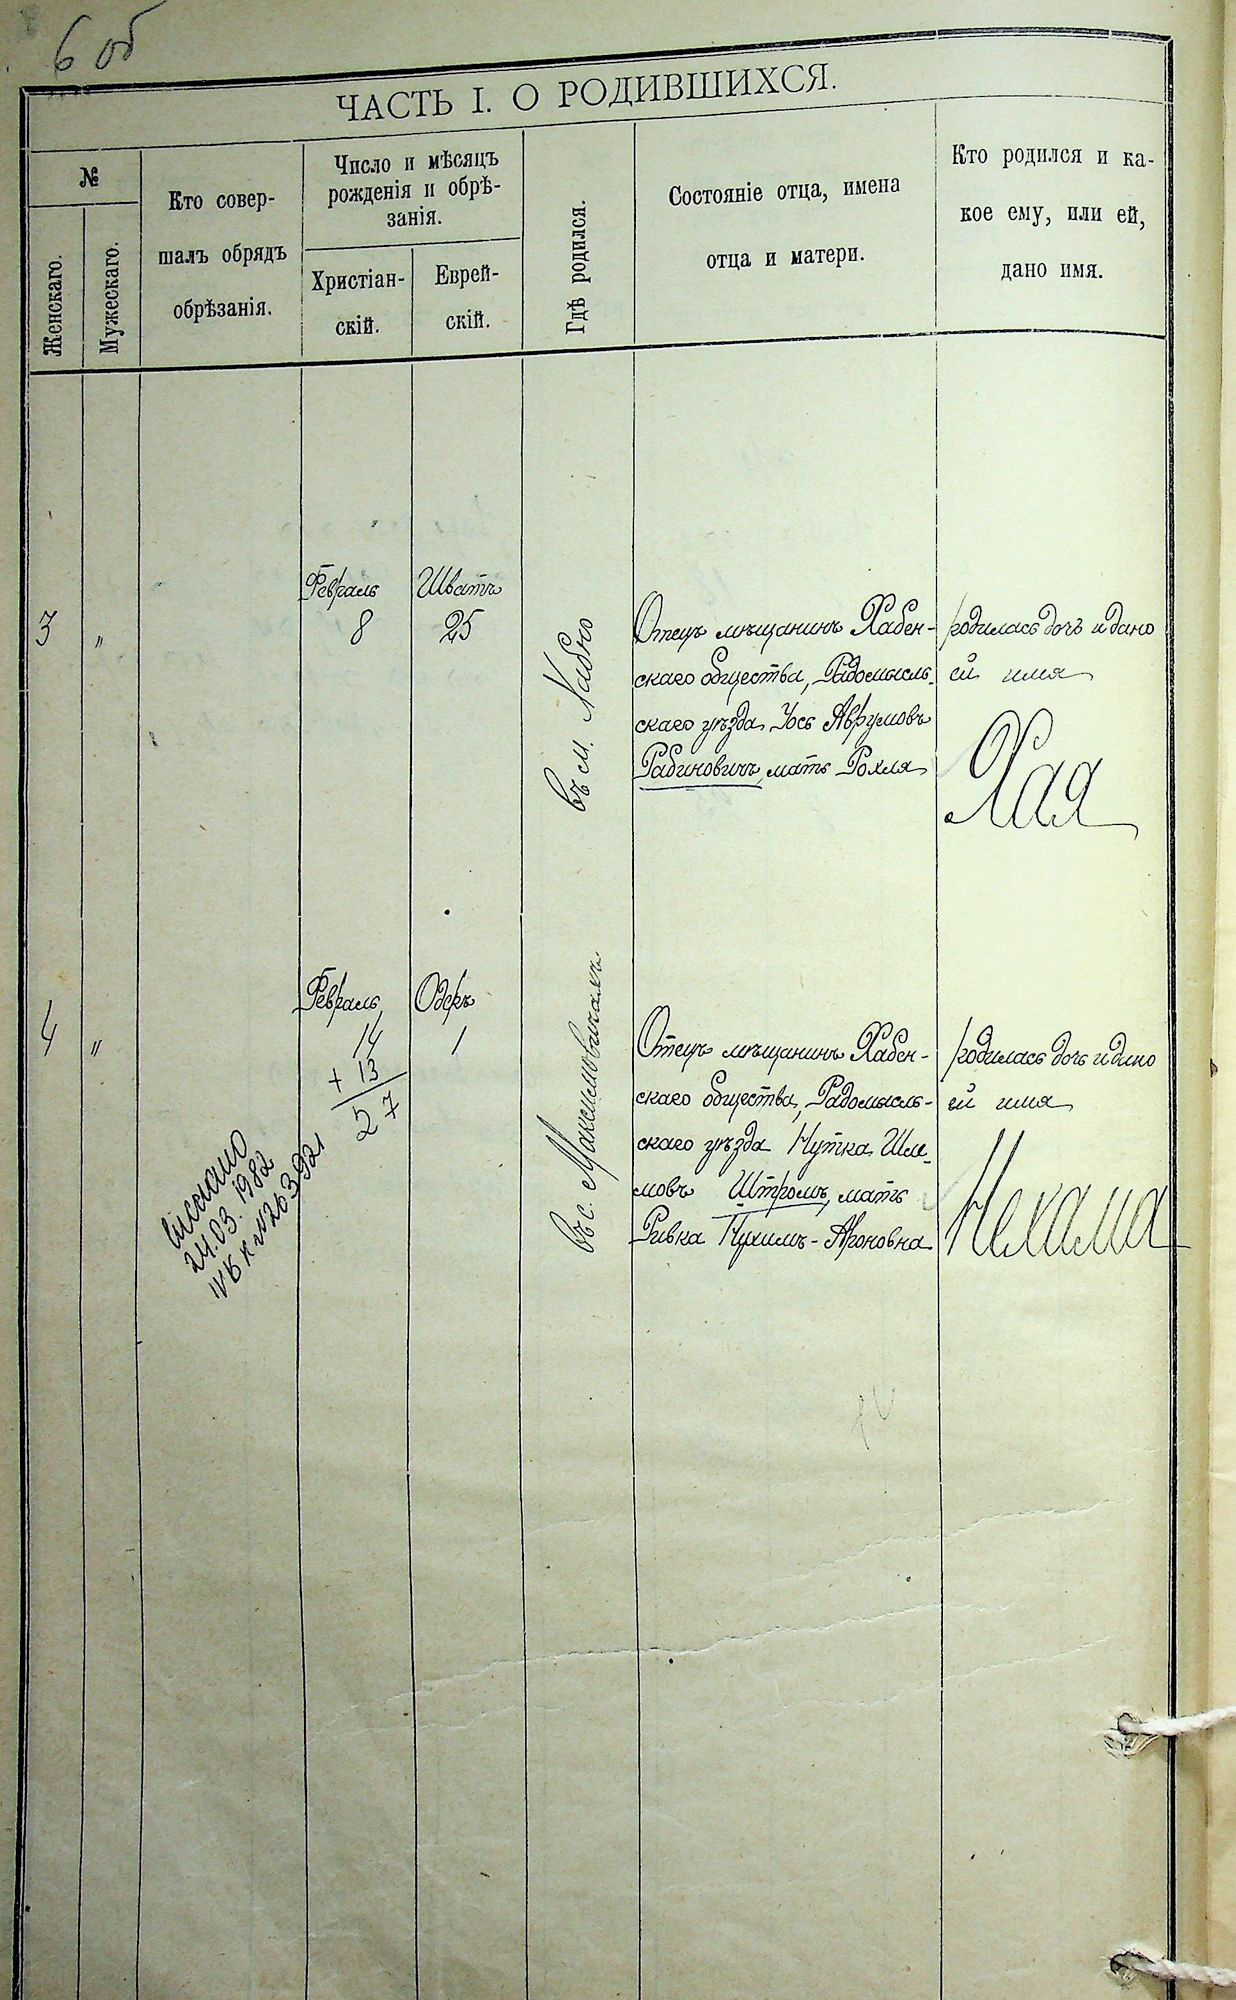 6 об
ЧАСТЬ I. О РОДИВШИХСЯ.
№
Женскаго.
Мужескаго.
Кто совер-
шалъ обрядъ
обрѣзанія.
Число и мѣсяцъ
рожденія и обрѣ-
занія.
Христіан-
скій.
Еврей-
скій.
Гдѣ родился.
Состояніе отца, имена
отца и матери.
Кто родился и ка-
кое ему, или ей,
дано имя.
3
"
Февраль
8
Шватъ
25
въ м. Хабно
Отецъ мѣщанинъ Хабен-
скаго общества, Радомысль-
скаго уѣзда Іось Аврумовъ
Рабиновичъ, мать Рохля
родилась дочь и дано
ей имя
Хая
4
"
Февраль
14
+ 13
27
Одеръ
1
въ с. Максимовичахъ
Отецъ мѣщанинъ Хабен-
скаго общества, Радомысль-
скаго уѣзда Нутка Шле-
мовъ Штромъ, мать
Ривка Нухимъ-Ароновна
родилась дочь и дано
ей имя
Нехама
24.03.1982